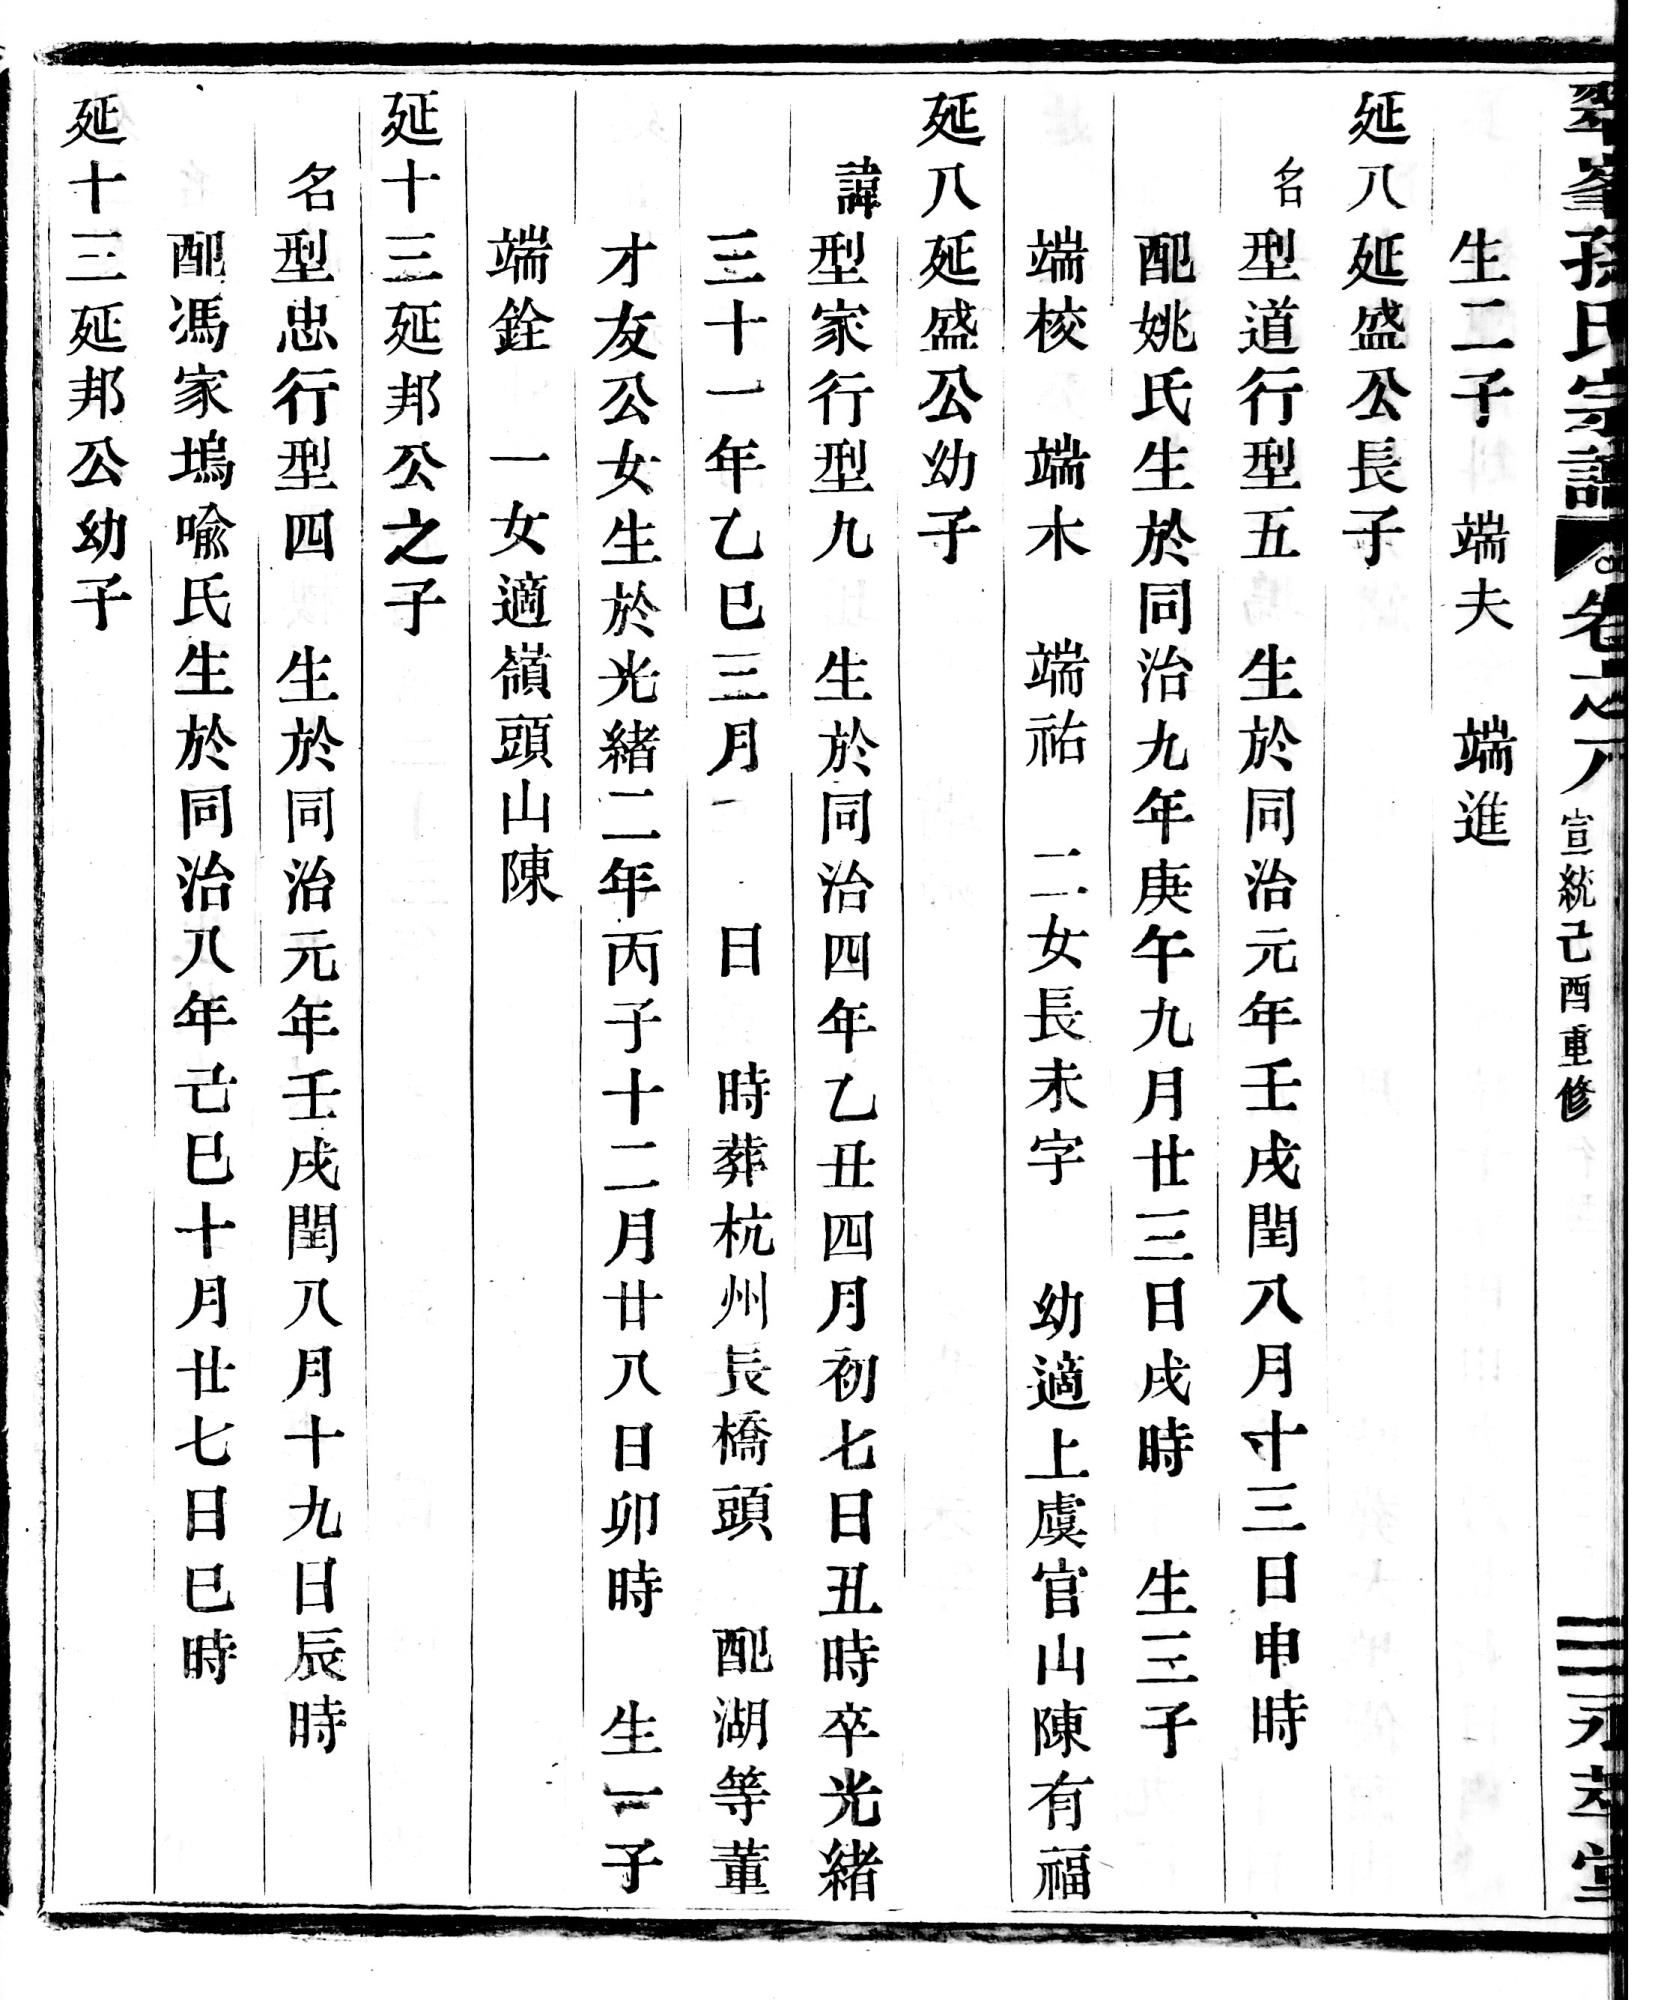 翠峯孫氏宗譜 卷之八 宣統己酉重修 永萃堂
生二子 端夫 端進
延八延盛公長子
名型道行型五 生於同治元年壬戌閏八月十三日申時
配姚氏生於同治九年庚午九月廿三日戌時 生三子
端校 端木 端祐 二女長未字 幼適上虞官山陳有福
延八延盛公幼子
諱型家行型九 生於同治四年乙丑四月初七日丑時卒光緒
三十一年乙巳三月 日 時葬杭州長橋頭 配湖等董
才友公女生於光緒二年丙子十二月廿八日卯時 生一子
端銓 一女適嶺頭山陳
延十三延邦公之子
名型忠行型四 生於同治元年壬戌閏八月十九日辰時
配馮家塢喩氏生於同治八年己巳十月廿七日巳時
延十三延邦公幼子